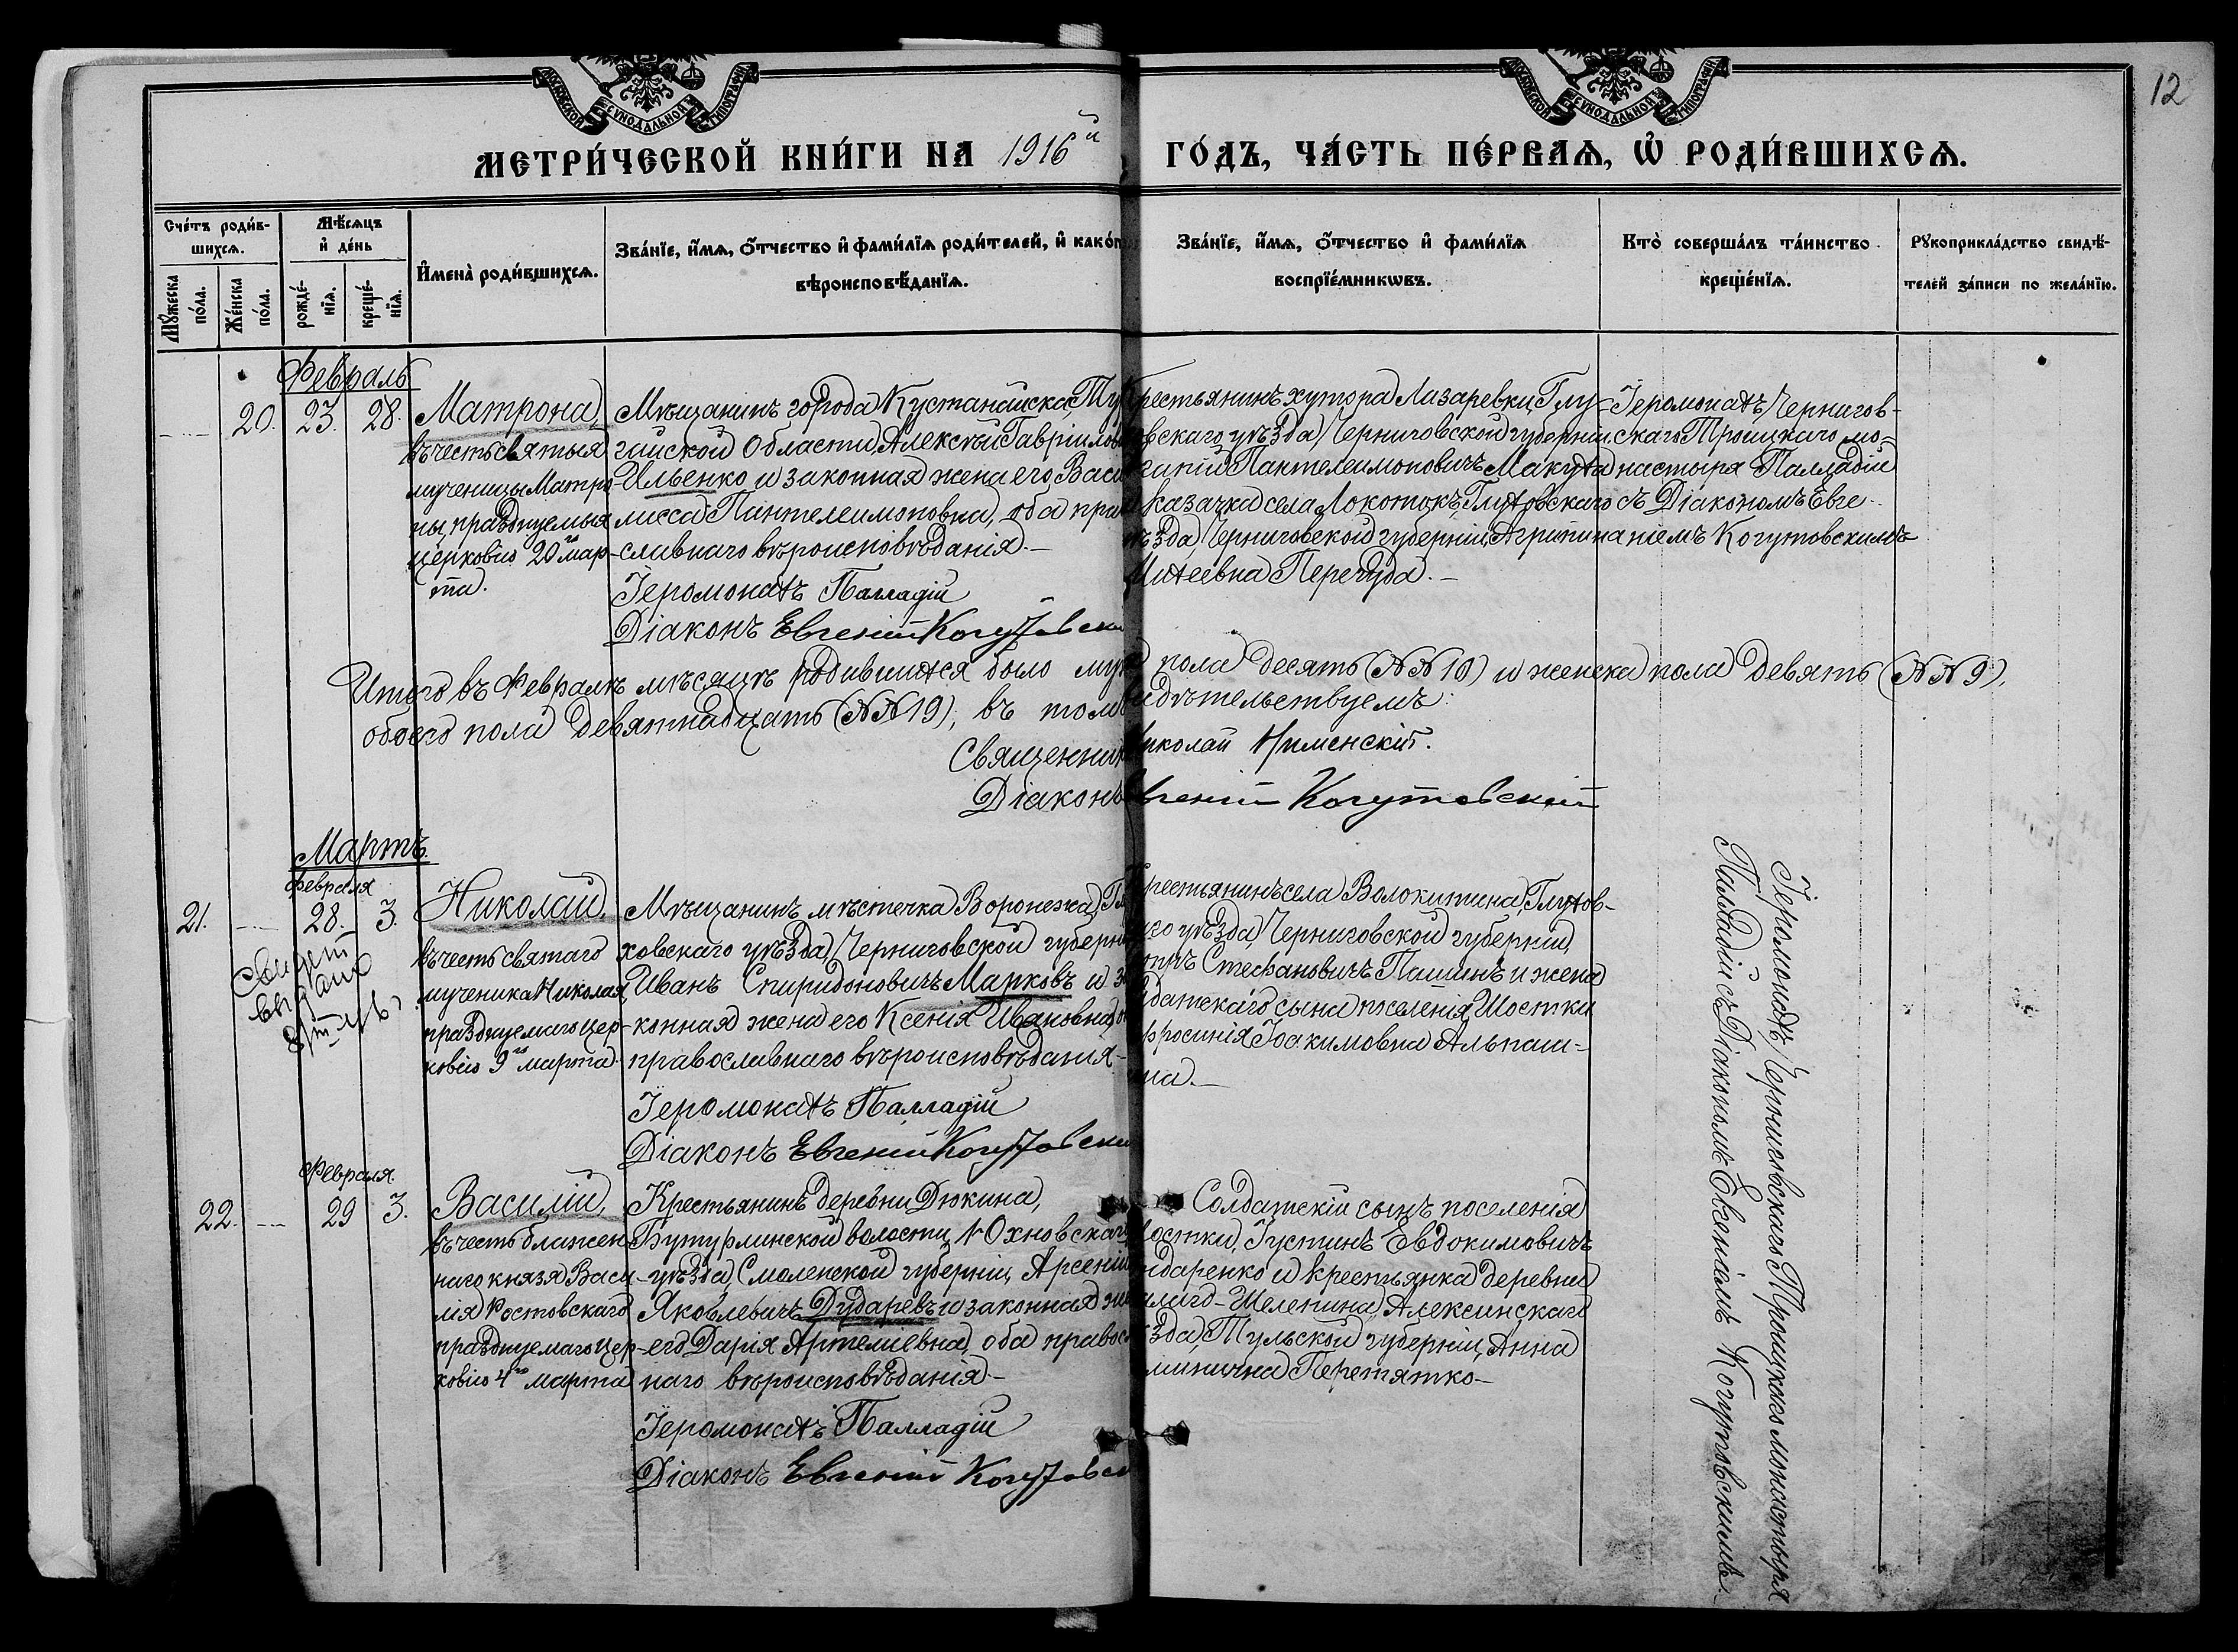 12
МОСКОВСКОЙ СѴНОДАЛЬНОЙ ТИПОГРАФІИ
МОСКОВСКОЙ СѴНОДАЛЬНОЙ ТИПОГРАФІИ
МЕТРИ́ЧЕСКОЙ КНИ́ГИ НА 1916й ГО́ДЪ, ЧА́СТЬ ПЕ́РВАѦ, Ѡ҆ РОДИ́ВШИХСѦ.
Сче́тъ роди́в-
шихсѧ.
Мꙋ́жеска по́ла.
Же́нска по́ла.
Мѣ́сѧцъ
и҆ де́нь
рожде́-
нїѧ.
креще́-
нїѧ.
И҆мена̀ роди́вшихсѧ.
Зва́нїе, и҆́мѧ, ѻ҆́тчество и҆ фами́лїѧ роди́телей, и҆ како́гѡ
вѣроисповѣ́данїѧ.
Зва́нїе, и҆́мѧ, ѻ҆́тчество и҆ фами́лїѧ
воспрїе́мникѡвъ.
Кто̀ соверша́лъ та́инство
креще́нїѧ.
Рꙋкоприкла́дство свидѣ́-
телей за́писи по жела́нїю.
Февраль
20. 23. 28.
Матрона,
въ честь святыя
мученицы Матро-
ны, празднуемыя
церковію 20го мар-
та.
Мѣщанинъ города Кустанайска, Тур
гайской области, Алексѣй Гавріилов
Ильенко и законная жена его Васи
лисса Пантелеимоновна, оба прав
славнаго вѣроисповѣданія.—
Іеромонахъ Палладій
Діаконъ Евгеній Когутовски
рестьянинъ хутора Лазаревки, Глу-
овскаго уѣзда, Черниговской губерніи,
Пантелеимоновичъ Макуха
казачка села Локотокъ, Глуховскаго
уѣзда, Черниговской губерніи, Агрипина
Михеевна Перегуда.—
Іеромонахъ Чернигов-
скаго Троицкаго мо-
настыря Палладій
съ Діакономъ Евге-
ніемъ Когутовскимъ
Итого въ Февралѣ мѣсяцѣ родившихся было муж пола десять (№№ 10) и женска пола девять (№№ 9),
обоего пола девятнадцать (№№ 19); въ томъ свидѣтельствуемъ:
Священник Николай Нименскій.
Діаконъ Евгеній Когутовскій
Мартъ.
Февраля
21. 28. 3.
Свидет
выдано
Николай,
въ честь святаго
мученика Николая,
празднуемаго цер-
ковію 9го марта.
Мѣщанинъ мѣстечка Воронежа, Глу
ховскаго уѣзда, Черниговской губерн
Иванъ Спиридоновичъ Марковъ и за
конная жена его Ксенія Ивановна, о
православнаго вѣроисповѣданія.—
Іеромонахъ Палладій
Діаконъ Евгеній Когутовски
Крестьянинъ села Волокитина, Глухов-
ко уѣзда, Черниговской губерніи,
Стефановичъ Пашинъ и жена
датскаго сына поселенія Шостки
фросинія Іоакимовна Альпаш-
на.—
Іеромонахъ Черниговскаго Троицкаго монастыря
Палладій съ Діакономъ Евгеніемъ Когутовскимъ.
Февраля.
22. 29 3.
Василій,
въ честь блажен-
наго князя Васи-
лія Ростовскаго,
празднуемаго цер-
ковію 4го марта
Крестьянинъ деревни Дюкина,
Бутурлинской волости, Юхновскаго
уѣзда, Смоленской губерніи, Арсеній
Яковлевичъ Дударевъ и законная же
его Дарія Артемиевна, оба правос
наго вѣроисповѣданія.—
Іеромонахъ Палладій
Діаконъ Евгеній Когутовск
Солдатскій сынъ поселенія
Шостки, Іустинъ Евдокимовичъ
ндаренко и крестьянка деревни
Шелепина, Алексинскаго
ѣзда, Тульской губерніи, Анна
минична Перетятко—